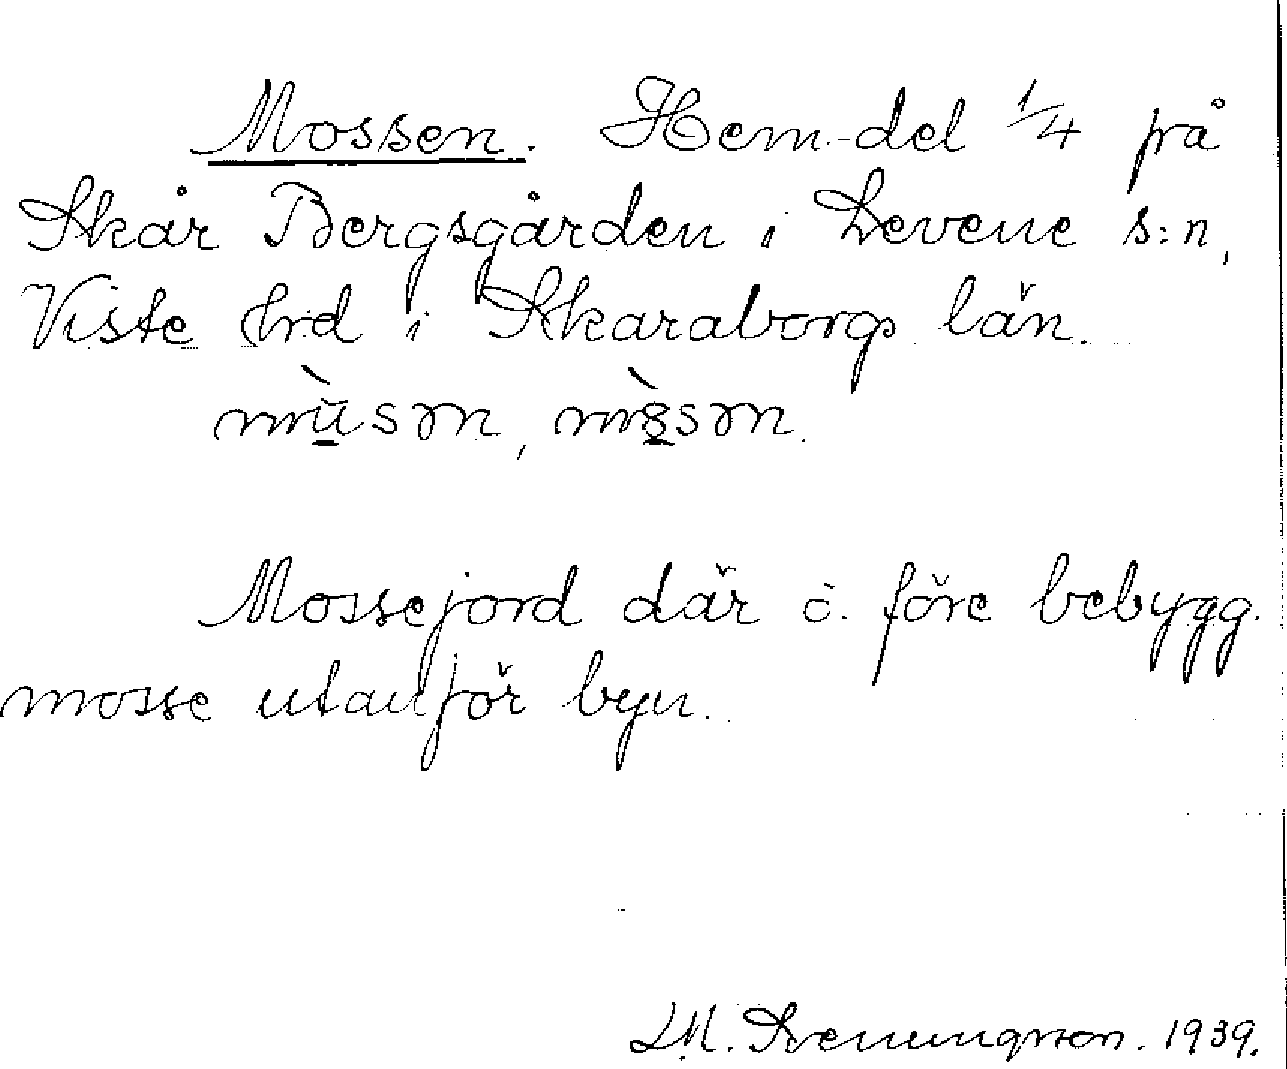 Mossen. Hem.-del 1/4 på
Skår Bergsgården i Levene s:n,
Viste hrd i Skaraborgs län.
Mossejord där o. före bebygg.
mosse utanför byn.
1939.